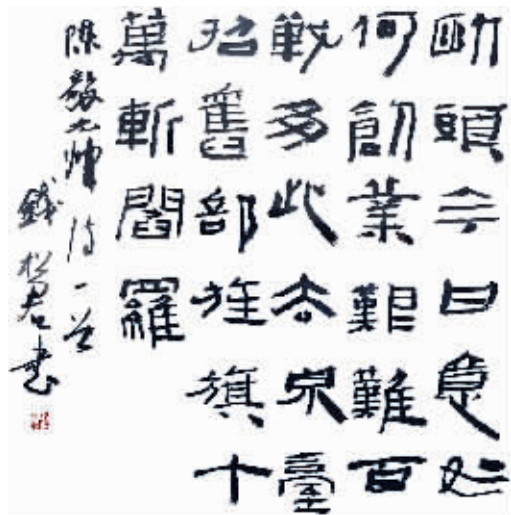 斷頭今日意如
何創業艱難百
戰多此去泉臺
招舊部旌旗十
萬斬閻羅
陳毅元帥詩一首
錢君匋書